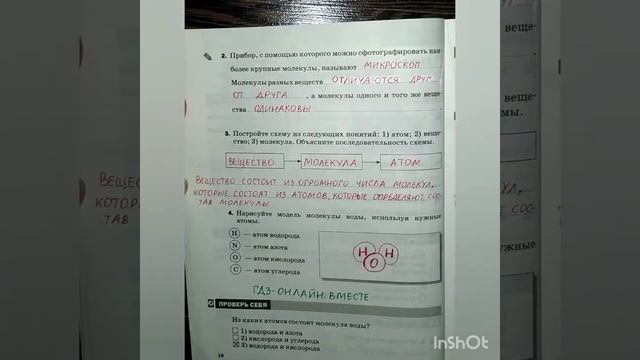 2. Прибор, с помощью которого можно сфотографировать наи-
более крупные молекулы, называют МИКРОСКОП
Молекулы разных веществ ОТЛИЧАЮТСЯ ДРУГ
ОТ ДРУГА, а молекулы одного и того же веще-
ства ОДИНАКОВЫ
3. Постройте схему из следующих понятий: 1) атом; 2) веще-
ство; 3) молекула. Объясните последовательность схемы.
ВЕЩЕСТВО МОЛЕКУЛА АТОМ
ВЕЩЕСТВО СОСТОИТ ИЗ ОГРОМНОГО ЧИСЛА МОЛЕКУЛ,
КОТОРЫЕ СОСТОЯТ ИЗ АТОМОВ, КОТОРЫЕ ОПРЕДЕЛЯЮТ СОС-
ТАВ МОЛЕКУЛЫ
4. Нарисуйте модель молекулы воды, используя нужные
атомы.
H — атом водорода
N — атом азота
O — атом кислорода
C — атом углерода
H H
O
ГДЗ-ОНЛАЙН. ВМЕСТЕ
ПРОВЕРЬ СЕБЯ
Из каких атомов состоит молекула воды?
1) водорода и азота
2) кислорода и углерода
3) водорода и кислорода
18
InShOt